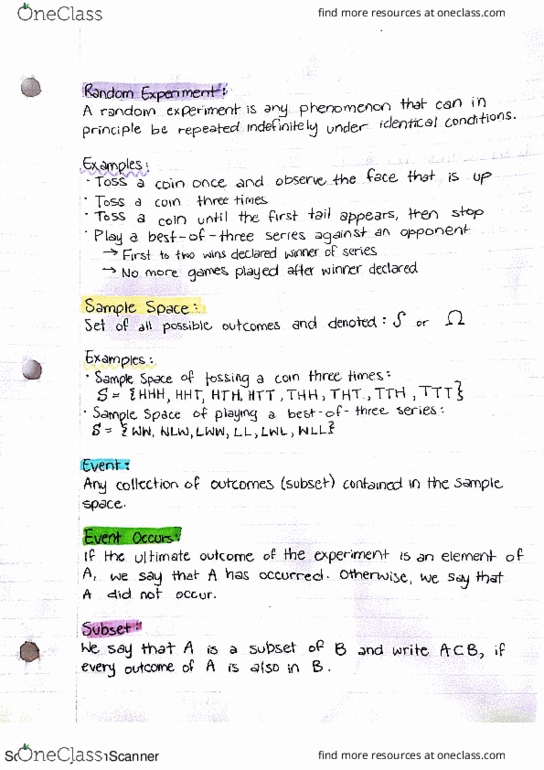 OneClass find more resources at oneclass.com
Random Experiment:
A random experiment is any phenomenon that can in
principle be repeated indefinitely under identical conditions.
Examples:
· Toss a coin once and observe the face that is up
· Toss a coin three times
· Toss a coin until the first tail appears, then stop
· Play a best-of-three series against an opponent
→ First to two wins declared winner of series
→ No more games played after winner declared
Sample Space:
Set of all possible outcomes and denoted: S or Ω
Examples:
· Sample Space of tossing a coin three times:
S = {HHH, HHT, HTH, HTT, THH, THT, TTH, TTT}
· Sample Space of playing a best-of-three series:
S = {WW, WLW, LWW, LL, LWL, WLL}
Event:
Any collection of outcomes (subset) contained in the sample
space.
Event Occurs:
If the ultimate outcome of the experiment is an element of
A, we say that A has occurred. Otherwise, we say that
A did not occur.
Subset:
We say that A is a subset of B and write A⊂B, if
every outcome of A is also in B.
OneClass Scanner find more resources at oneclass.com